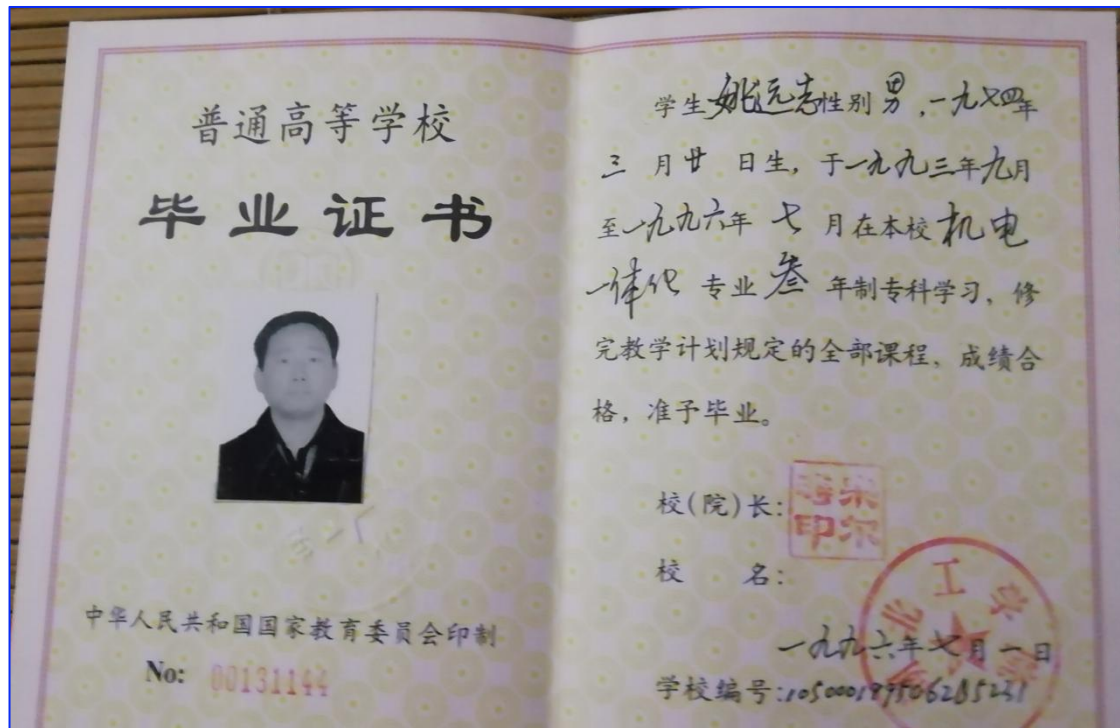 普通高等学校
毕业证书
中华人民共和国国家教育委员会印制
No: 00131144
学生姚远志性别男,一九七四年
三月廿日生,于一九九三年九月
至一九九六年七月在本校机电
一体化专业叁年制专科学习,修
完教学计划规定的全部课程,成绩合
格,准予毕业。
校(院)长:
校名:
一九九六年七月一日
学校编号: